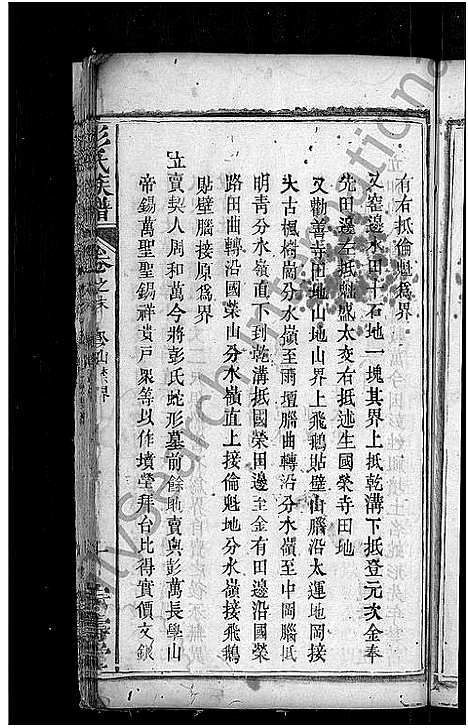 有右抵倫魁爲界
又窰邊水田十石地一塊其界上抵乾溝下抵登元次金奉
先田邊左抵魁盛太交右抵述生國榮寺田地
又勸善寺田地山地山界上飛鵝貼壁山腦沿太運地岡接
大古楓樹崗分水嶺至雨壇腦曲轉沿分水嶺至中岡腦抵
明青分水嶺直下到乾溝抵國榮田邊至金有田邊沿國榮
路田曲轉沿國榮山分水嶺直上接倫魁地分水嶺接飛鵝
貼壁腦接原爲界
立賣契人周和萬今將彭氏蛇形墓前餘地賣與彭萬長學山
帝錫萬聖聖錫祥貴戸衆等以作墳塋拜台比得實價文銀
彭氏族譜
卷之末
山禁界
mysearch International